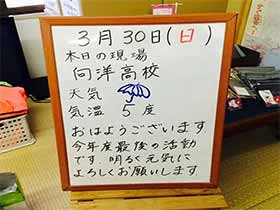 3月30日(日)
本日の現場
向洋高校
天気
気温 5度
おはようございます
今年度最後の活動
です。明るく元気に
よろしくお願いします